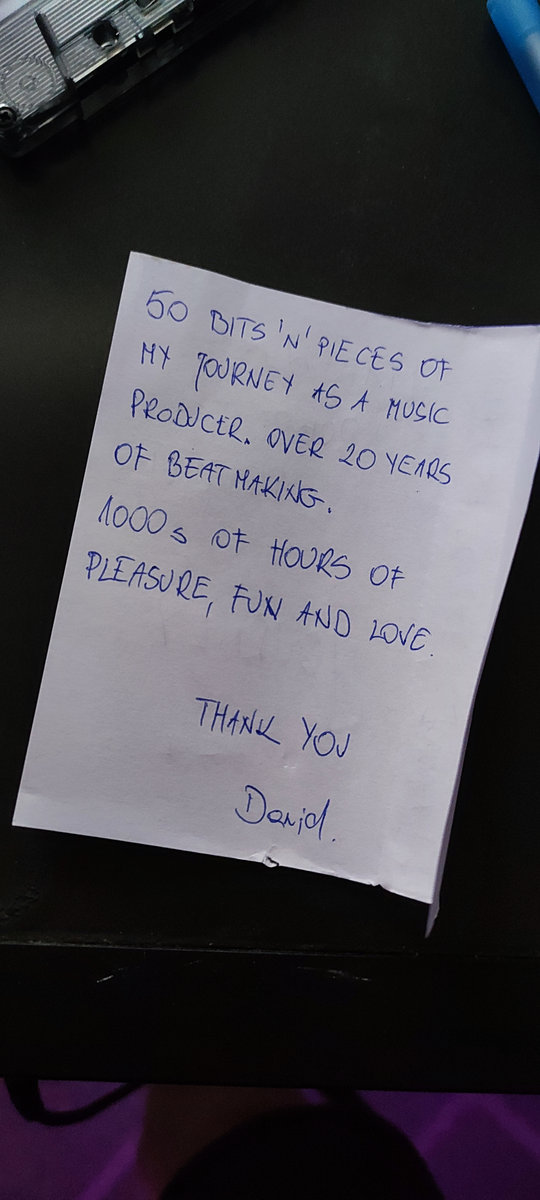 50 BITS 'N' PIECES OF
MY JOURNEY AS A MUSIC
PRODUCER. OVER 20 YEARS
OF BEATMAKING.
1000s OF HOURS OF
PLEASURE, FUN AND LOVE.
THANK YOU
Daniel.